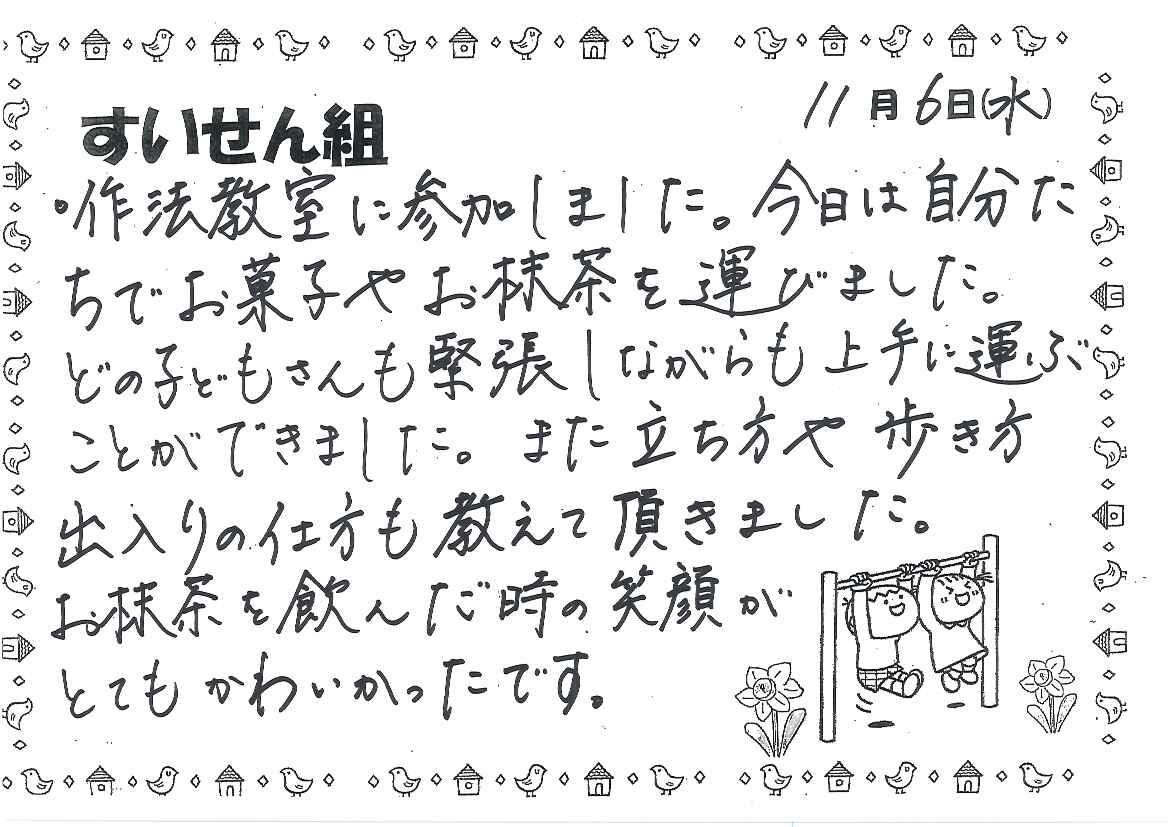 11月6日(水)
すいせん組
・作法教室に参加しました。今日は自分た
ちでお菓子やお抹茶を運びました。
どの子どもさんも緊張しながらも上手に運ぶ
ことができました。また立ち方や歩き方
出入りの仕方も教えて頂きました。
お抹茶を飲んだ時の笑顔が
とてもかわいかったです。